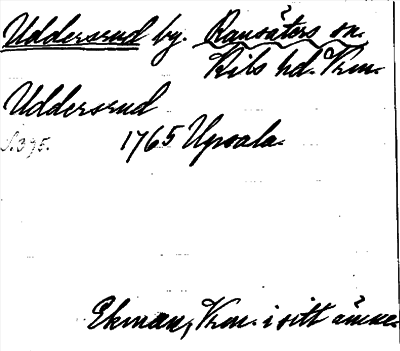 Uddersrud by. Ransäters sn.
Kils hd. Vrm.
Uddersrud
S. 395. 1765 Upsala.
Ekman, Vrm. i sitt ämne